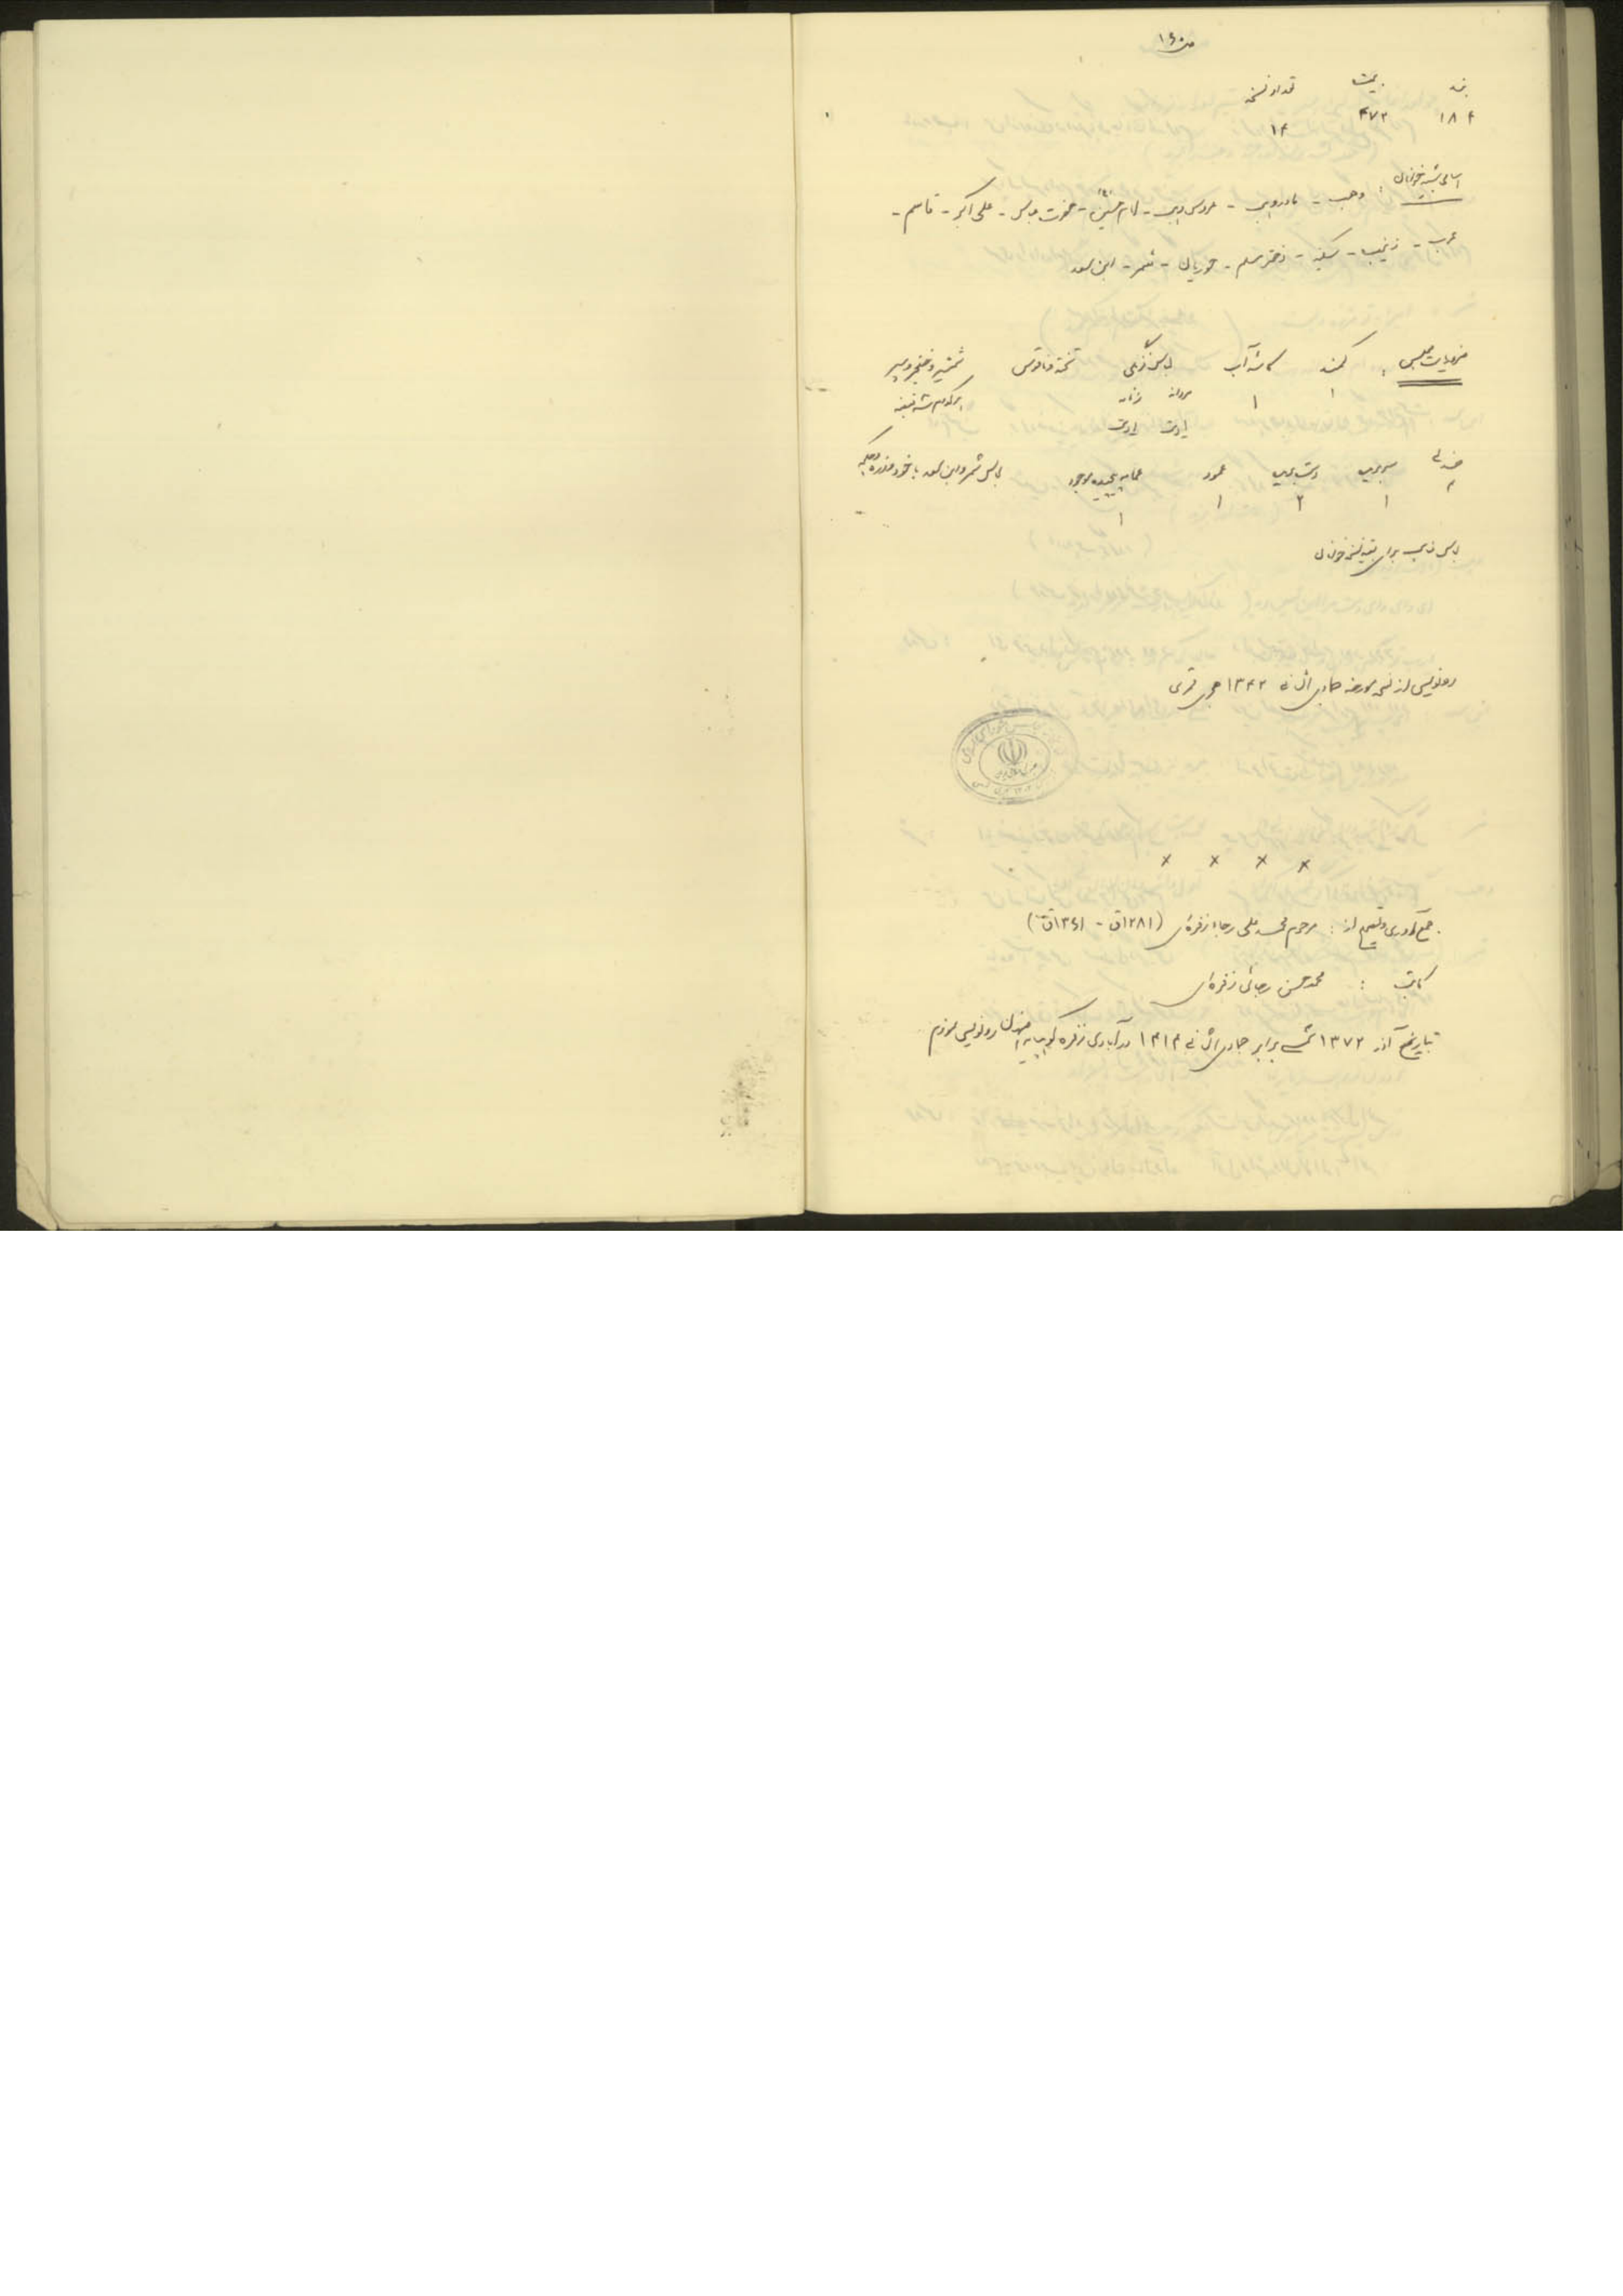 ص ۱۶۰
بند بیت تعداد نسخه
۱۸۴ ۴۷۲ ۱۴
اسامی شبیه‌خوانان : وهب - مادر وهب - عروس وهب - امام حسین - حضرت عباس - علی اکبر - قاسم -
عرب - زینب - سکینه - دختر مسلم - حوریان - شمر - ابن سعد
ضروریات مجلس : کمند کاسه آب لباس فرنگی تخته ناقوس شمشیر و خنجر و سپر
۱ ۱ مردانه زنانه هرکدام سه قبضه
۱دست ۱دست
صندلی سر بریده دست بریده عمود عمامه پیچیده موجود لباس شمر و ابن سعد با خود
۱ ۲ ۱ ۱
لباس مناسب برای بقیه نسخه خوانان
رونویس از نسخه مورخه جمادی الثانی ۱۳۴۲ هجری قمری
× × × ×
جمع‌آوری و تصحیح از : مرحوم محمد علی رجاء زفره‌ای (۱۲۸۱ق - ۱۳۶۱ق)
کاتب : محمد حسن رجائی زفره‌ای
بتاریخ آذر ۱۳۷۲ شمسی برابر جمادی الثانی ۱۴۱۴ در آبادی زفره کوهپایه اصفهان رونویس نمودم